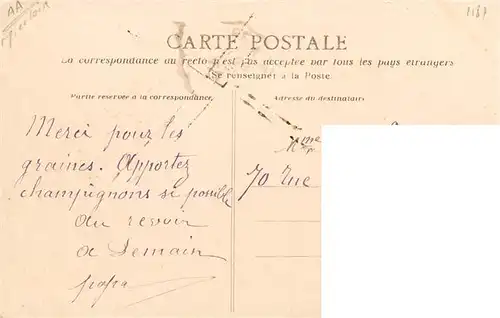 AA
1187
CARTE POSTALE
La correspondance au recto n'est pas acceptée par tous les pays étrangers
Se renseigner à la Poste.
Partie réservée à la correspondance.
Adresse du destinataire
Merci pour les
graines. Apportez
champignons si possible
au revoir
a Demain
papa
Mme
70 Rue